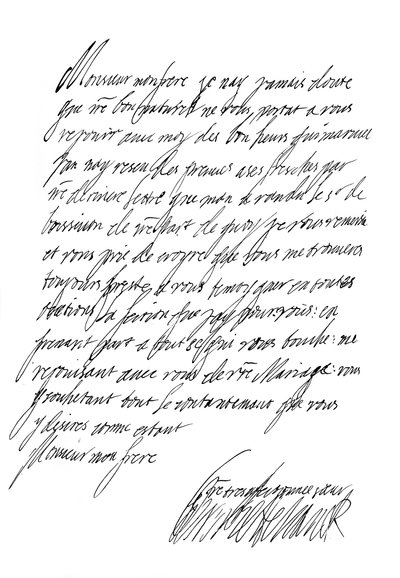 Monsieur mon frere je nay jamais doute
que vre bon naturel ne vous portat a vous
rejouir avec moy des bon heurs qui
jan nay les preuves ases fresches par
vre derniere lettre que man a randu le sr de
de vre part de quoy je vous remersie
et vous prie de croyre que vous me trouveres
toujours preste a vous en toutes
que jay pour vous: en
prenant part a tout ce qui vous touche: me
rejouisant avec vous de vre Mariage: vous
souhetant tout le contantement que vous
y desires comme estant
Monsieur mon frere
vre tres affectionnee sœur